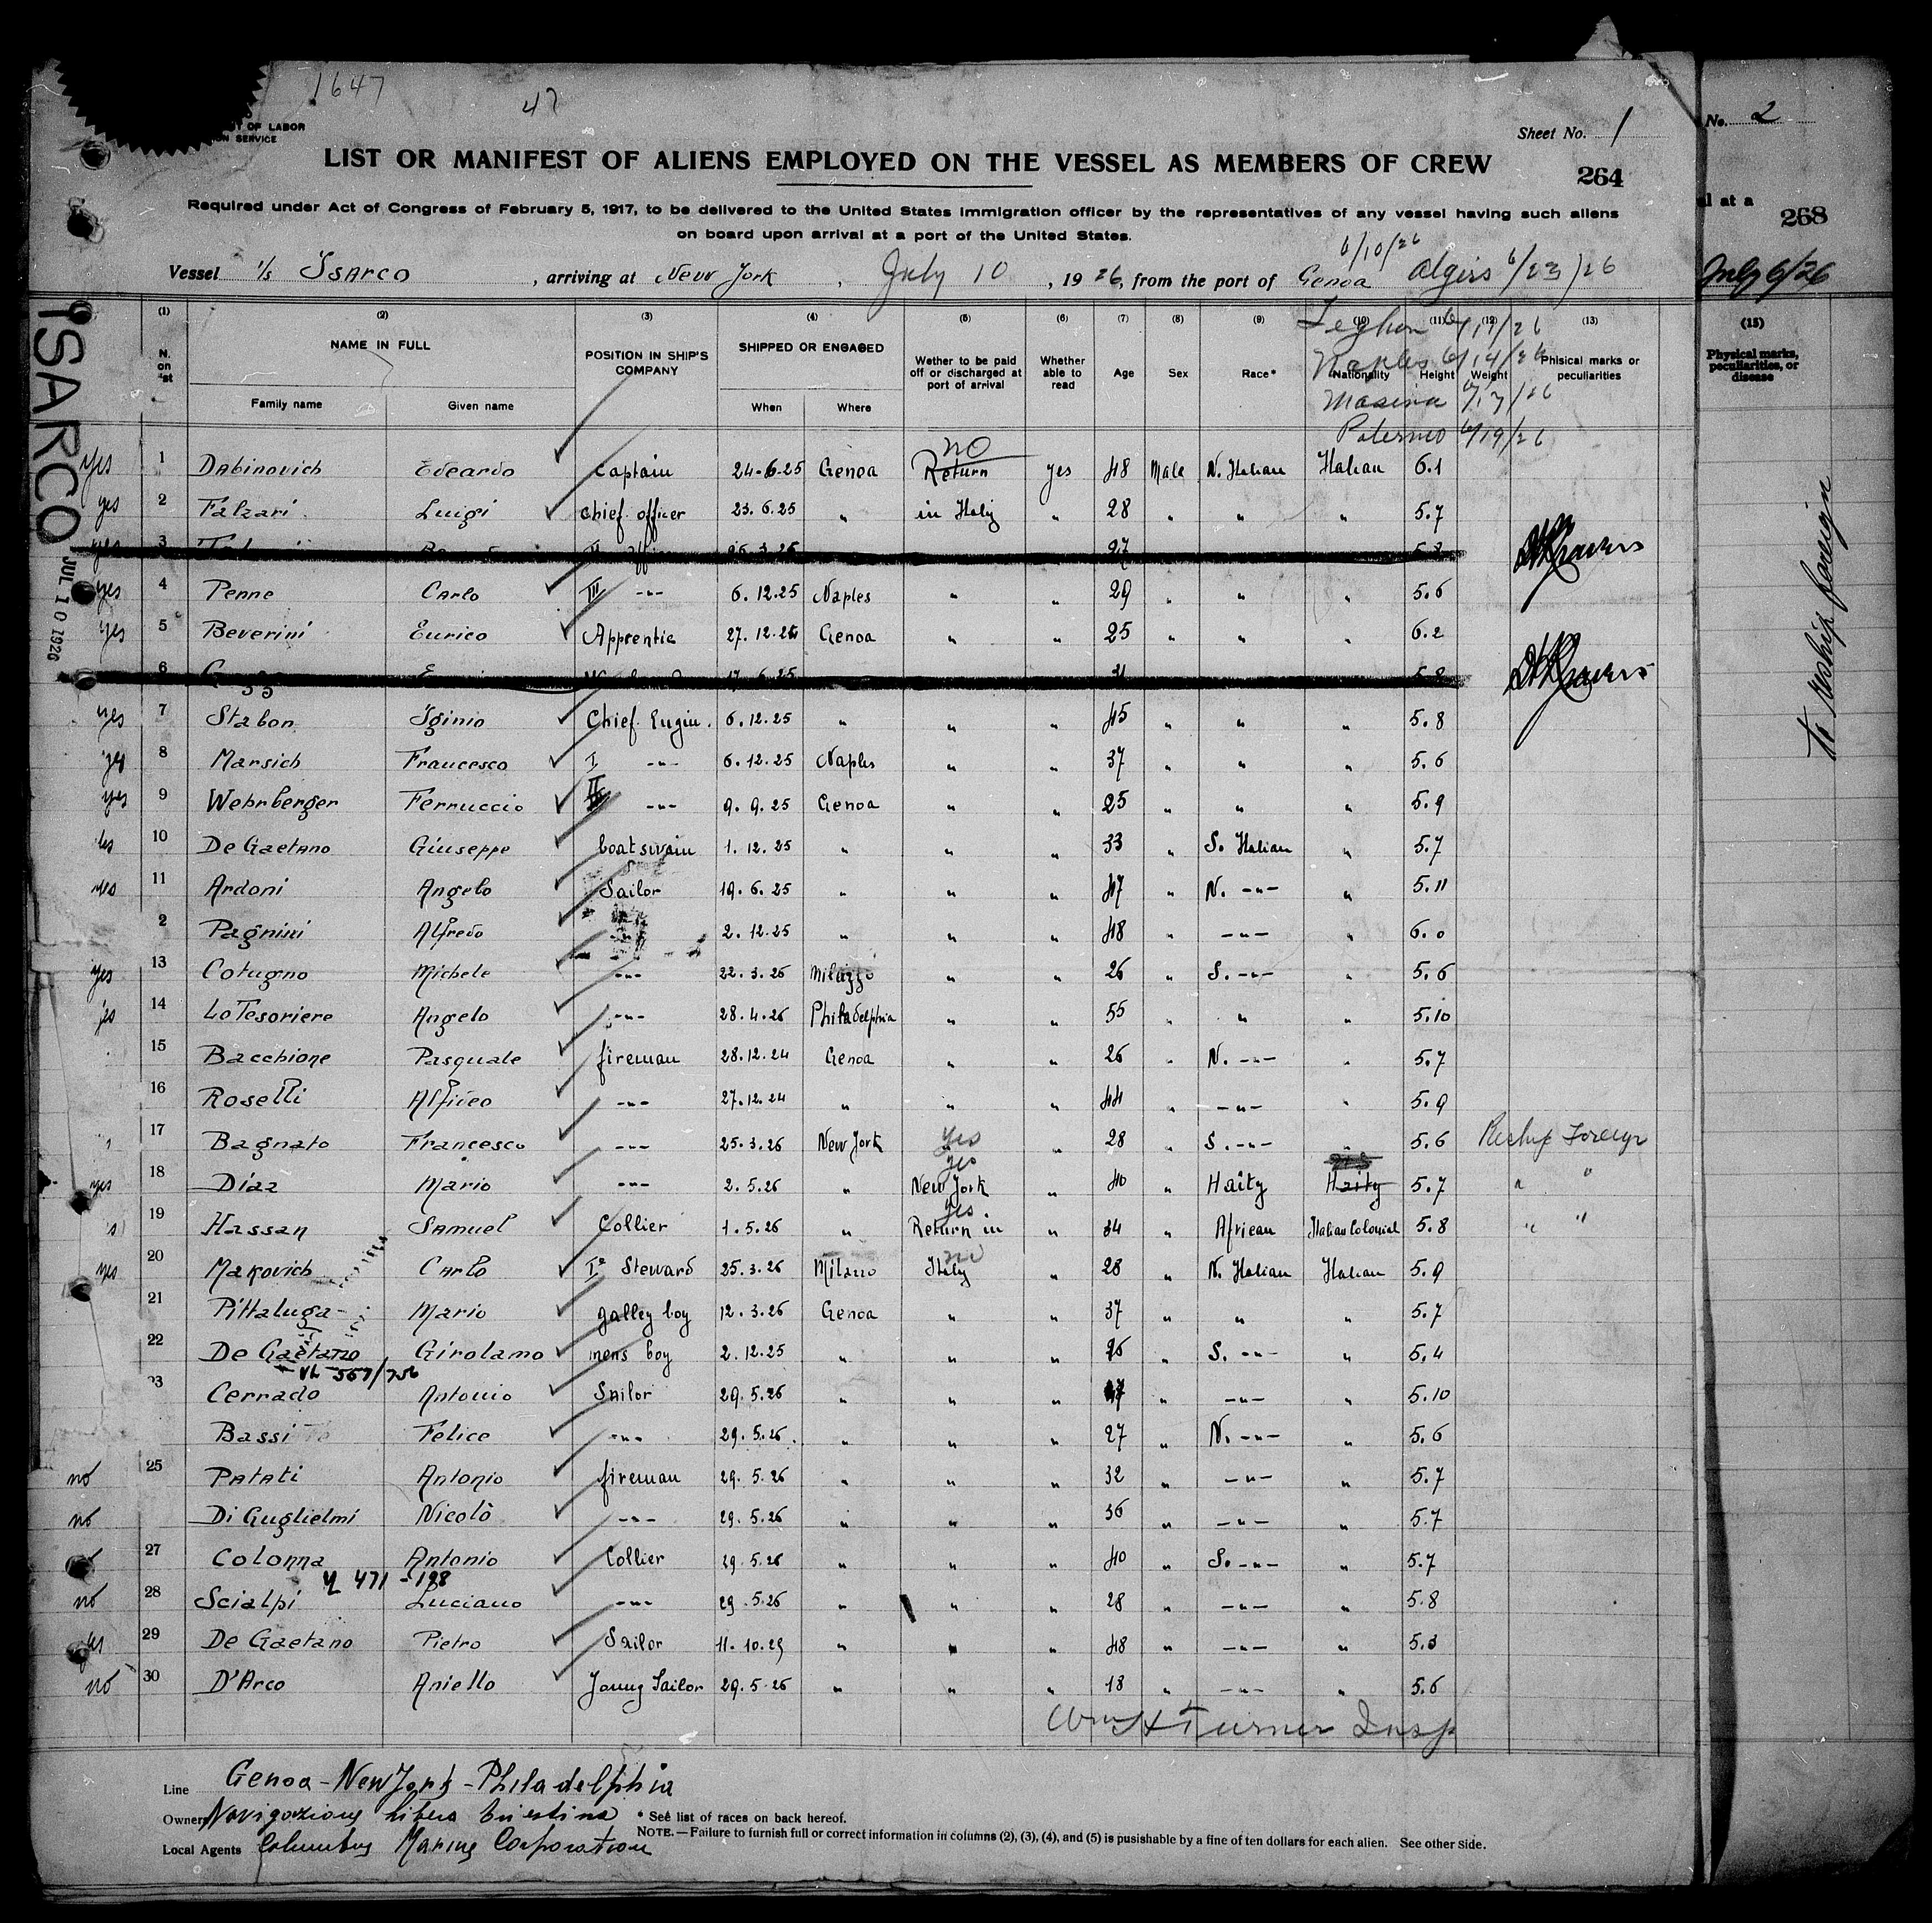 1647
47
OF LABOR
ON SERVICE
Sheet No. 1
No. 2
LIST OR MANIFEST OF ALIENS EMPLOYED ON THE VESSEL AS MEMBERS OF CREW
264
Required under Act of Congress of February 5, 1917, to be delivered to the United States Immigration officer by the representatives of any vessel having such aliens
on board upon arrival at a port of the United States.
al at a
268
6/10/26
Vessel ISARCO, arriving at New York, July 10, 1926, from the port of Genoa Algiers 6/23/26
July 6/26
Leghorn
Naples 6/14/26
Masina
Palermo 6/19/26
(1) (2) (3) (4) (5) (6) (7) (8) (9) (10) (11) (12) (13)
(15)
N. on
NAME IN FULL
Family name Given name
POSITION IN SHIP'S COMPANY
SHIPPED OR ENGAGED
When Where
Wether to be paid off or discharged at port of arrival
Whether able to read
Age Sex Race* Nationality Height Weight
Phisical marks or peculiarities
Physical marks, peculiarities, or disease
ISARCO
JUL 10 1926
To reship foreign
no
yes 1 Dabinovich Edoardo Captain 24-6-25 Genoa Return yes 48 Male N. Italian Italian 6.1
yes 2 Falzari Luigi Chief officer 23.6.25 " in Italy " 28 " " " 5.7
yes 3 27 5.8
yes 4 Penne Carlo III -"- 6.12.25 Naples " " 29 " " " 5.6
yes 5 Beverini Eurico Apprentie Genoa " " 25 " " " 6.2
6 5.8
yes 7 Stabon Iginio Chief Engin. 6.12.25 " " " 45 " " " 5.8
yes 8 Marsich Francesco I -"- 6.12.25 Naples " " 37 " " " 5.6
yes 9 Wehrberger Ferruccio II -"- 9.9.25 Genoa " " 25 " " " 5.9
10 De Gaetano Giuseppe boatswain 1.12.25 " " " 33 " S. Italian " 5.7
yes 11 Ardoni Angelo Sailor 19.6.25 " " " 47 " N. -"- " 5.11
2 Pagnini Alfredo -"- 2.12.25 " " " 48 " -"- " 6.0
yes 13 Cotugno Michele -"- 22.3.26 Milazzo " " 26 " S. -"- " 5.6
yes 14 Lo Tesoriere Angelo -"- 28.4.26 Philadelphia " " 55 " " " 5.10
15 Bacchione Pasquale fireman 28.12.24 Genoa " " 26 " N. -"- " 5.7
16 Roselli Alfireo -"- 27.12.24 " " " 44 " -"- " 5.9
17 Bagnato Francesco -"- 25.3.26 New York yes " 28 " S. -"- " 5.6 Reship Foreign
yes
yes 18 Diaz Mario -"- 2.5.26 " New York " 40 " Haity Haity 5.7 " "
yes
19 Hassan Samuel Collier 1.5.26 " Return in " 34 " African Italian Colonial 5.8 " "
no
yes 20 Makovich Carlo I° Steward 25.3.26 Milazzo Italy " 28 " N. Italian Italian 5.9
21 Pittaluga Mario galley boy 12.3.26 Genoa " " 37 " " " 5.7
22 De Gaetano Girolamo mens boy 2.12.25 " " " 26 " S. -"- " 5.4
23 Cerrado Antonio Sailor 29.5.26 " " " 47 " -"- " 5.10
Bassi Felice -"- 29.5.26 " " " 27 " N. -"- " 5.6
no 25 Patati Antonio fireman 29.5.26 " " " 32 " -"- " 5.7
no Di Guglielmi Nicolò -"- 29.5.26 " " " 36 " -"- " 5.7
27 Colonna Antonio Collier 29.5.26 " " " 40 " S. -"- " 5.7
471 - 198
no 28 Scialpi Luciano -"- 29.5.26 " " " 28 " -"- " 5.8
yes 29 De Gaetano Pietro Sailor " " " 48 " -"- " 5.3
no 30 D'Arco Aniello Joung Sailor 29.5.26 " " " 18 " -"- " 5.6
Wm H Turner Insp
Line Genoa - New York - Philadelphia
Owner Navigazione Libera Triestina * See list of races on back hereof.
NOTE.—Failure to furnish full or correct information in columns (2), (3), (4), and (5) is pusishable by a fine of ten dollars for each alien. See other side.
Local Agents Columbus Marine Corporation